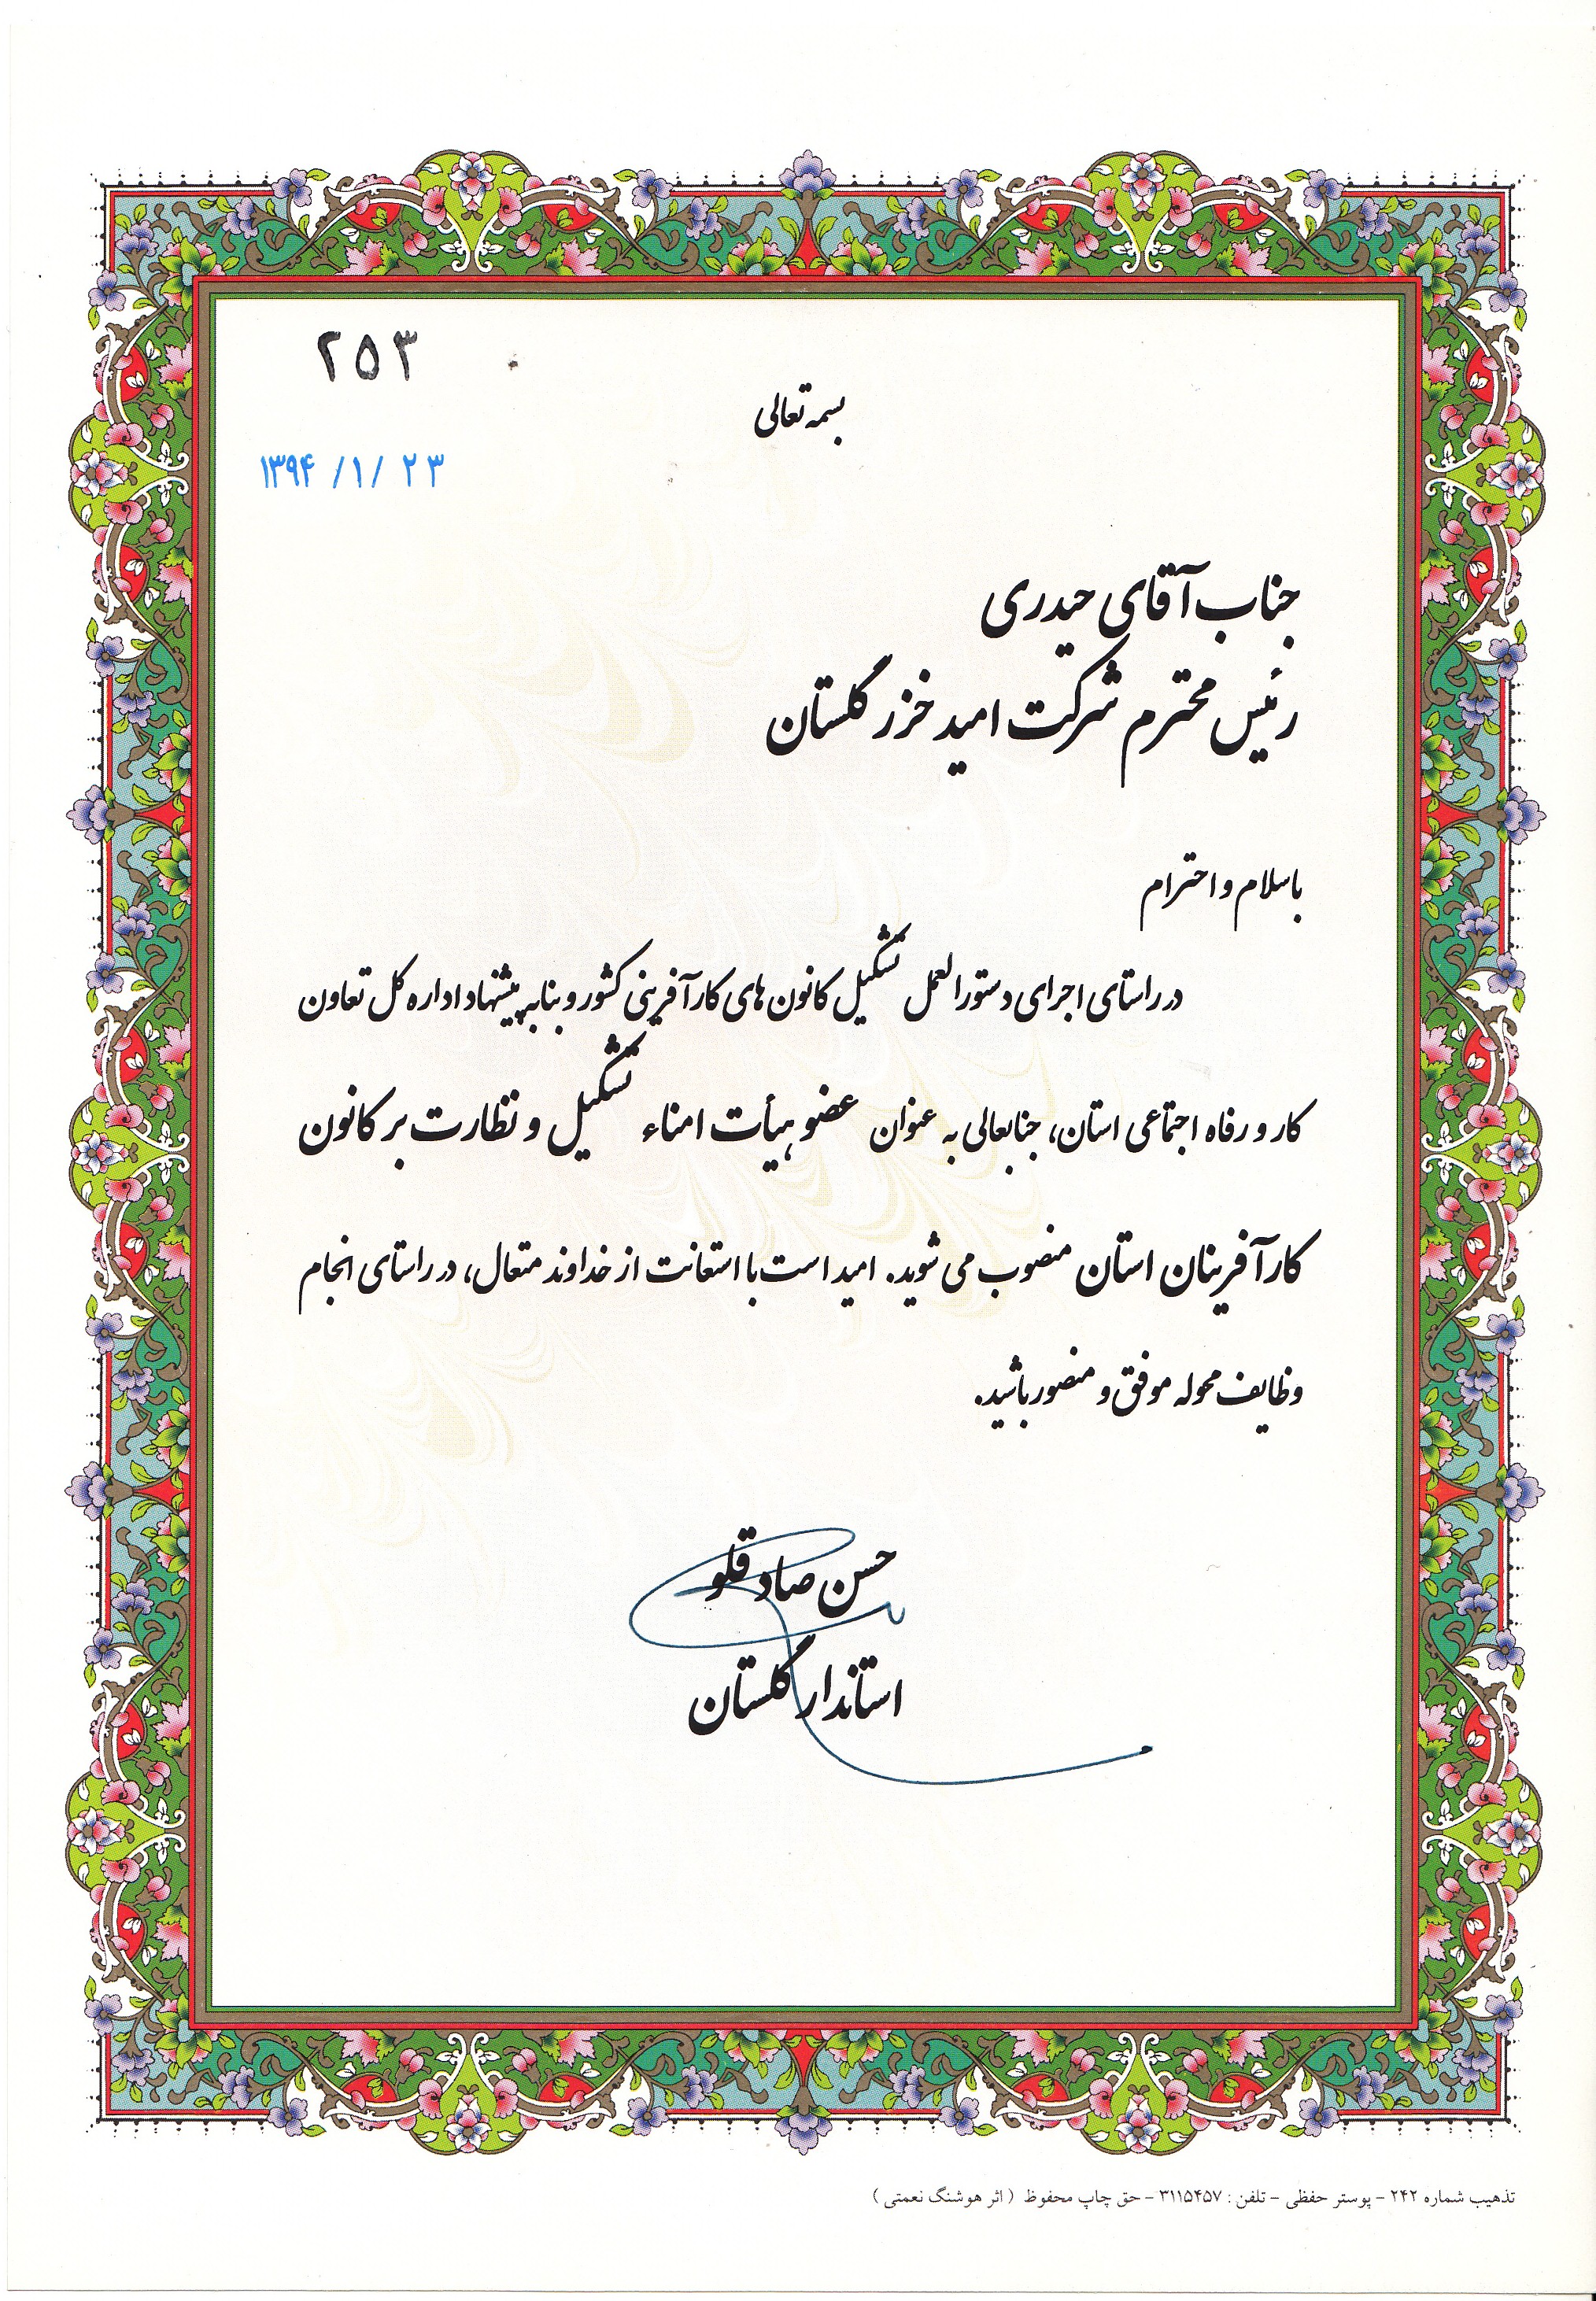 ۲۵۳
بسمه تعالی
۱۳۹۴ /۱/ ۲۳
جناب آقای حیدری
رئیس محترم شرکت امید خزر گلستان
با سلام و احترام
در راستای اجرای دستورالعمل تشکیل کانون های کارآفرینی کشور و بنا به پیشنهاد اداره کل تعاون
کار و رفاه اجتماعی استان، جنابعالی به عنوان عضو هیأت امناء تشکیل و نظارت بر کانون
کارآفرینان استان منصوب می شوید. امید است با استعانت از خداوند متعال، در راستای انجام
وظایف محوله موفق و منصور باشید.
حسن صادقلو
استاندار گلستان
تذهیب شماره ۲۴۲ - پوستر حفظی - تلفن : ۳۱۱۵۴۵۷ - حق چاپ محفوظ ( اثر هوشنگ نعمتی )